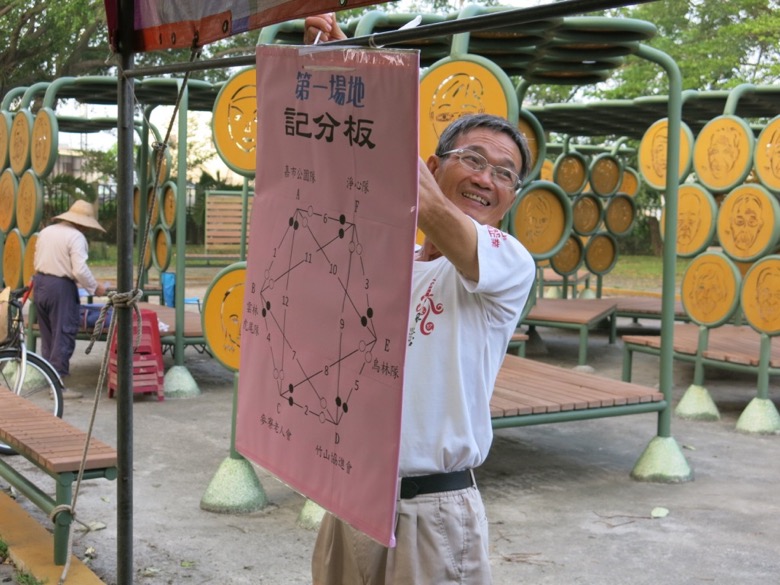 第一場地
記分板
嘉市公園隊
淨心隊
A
F
6
1
11
10
3
B
雲林
元極隊
12
9
4
7
E
鳥林隊
8
5
C
2
D
麥寮老人會
竹山協進會